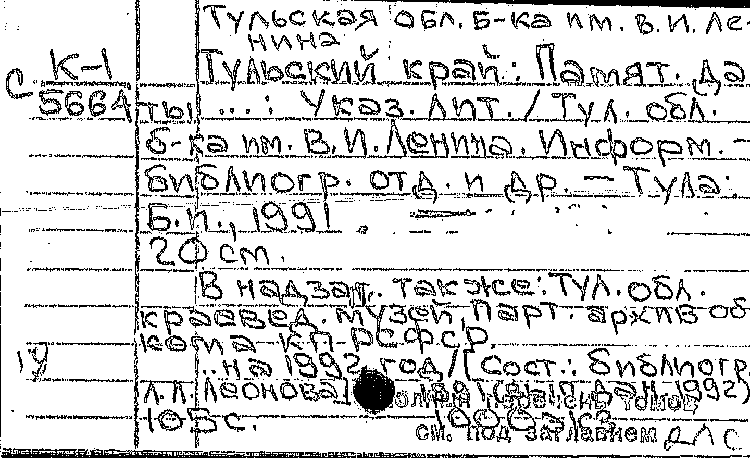 Тульская обл. б-ка им. В. И. Ле-
нина
К-1
Тульский край: Памят. да
С 5664
ты ...: Указ. лит. / Тул. обл.
б-ка им. В. И. Ленина. Информ.-
библиогр. отд. и др. — Тула:
Б. и., 1991
20 см.
В надзаг. также: Тул. обл.
краевед. музей, Парт. архив об
кома КП РСФСР.
..на 1992 год / [Сост.: библиогр.
Л. Л. Леонова] 1991 (вып. дан. 1992)
105 с.
полный перечень томов
см. под заглавием